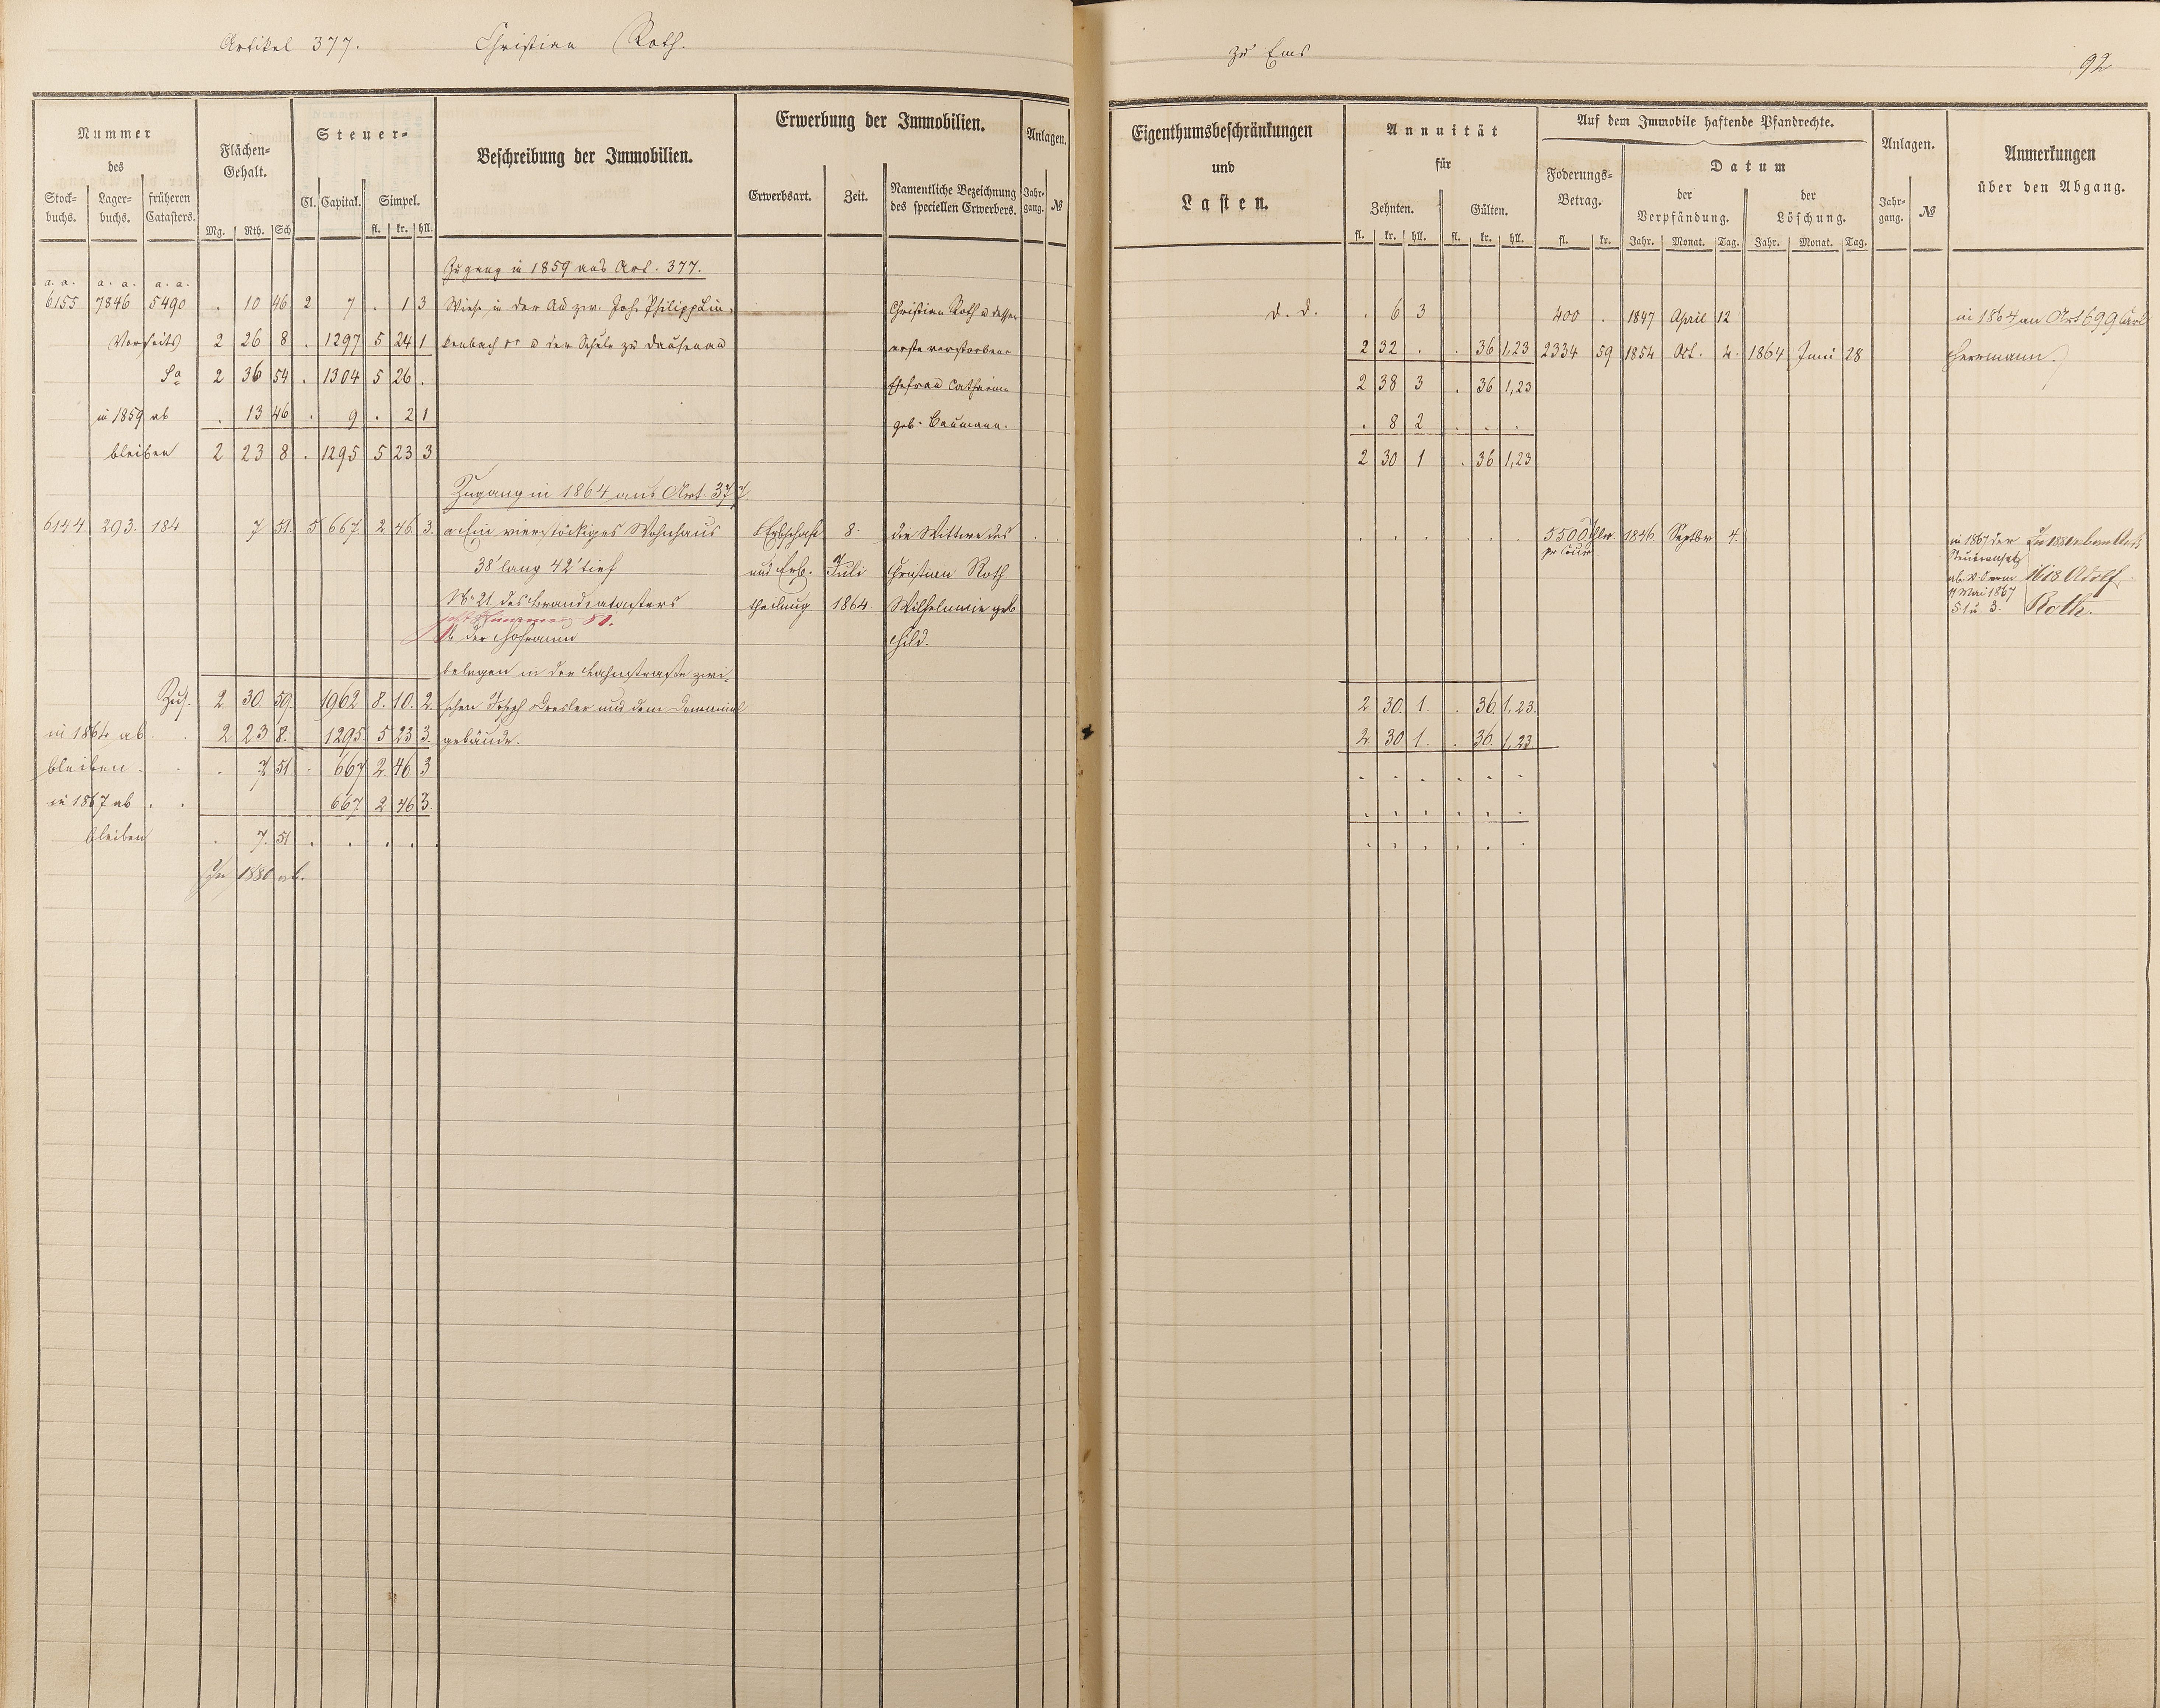 Artikel 377. Christian Roth.
zu Ems 92
Nummer
des
Stock-
buchs.
Lager-
buchs.
früheren
Catasters.
Flächen-
Gehalt.
Mg. Rth. Sch
Steuer-
Cl. Capital. Simpel.
fl. kr. hll.
Beschreibung der Immobilien.
Erwerbung der Immobilien.
Erwerbsart. Zeit.
Namentliche Bezeichnung
des speciellen Erwerbers.
Anlagen.
Jahr-
gang. №
Eigenthumsbeschränkungen
und
Lasten.
Annuität
für
Zehnten. Gülten.
fl. kr. hll. fl. kr. hll.
Auf dem Immobile haftende Pfandrechte.
Foderungs-
Betrag.
fl. kr.
Datum
der
Verpfändung.
der
Löschung.
Jahr. Monat. Tag. Jahr. Monat. Tag.
Anlagen.
Jahr-
gang. №
Anmerkungen
über den Abgang.
Zugang in 1859 aus Art. 377.
a. a. a. a. a. a.
6155 7846 5490 . 10 46 2 7 . 1 3 Wiese in der Au zw. Joh. Philipp Lin- Christian Roth u dessen d. d. . 6 3 400 . 1847 April 12 in 1864 an Art 699 Carl
Vorseits 2 26 8 . 1297 5 24 1 kenbach u der Schule zu Dausenau erste verstorbene 2 32 . . 36 1,23 2334 59 1854 Oct. 4. 1864 Juni 28 Herrmann.
Sa 2 36 54 . 1304 5 26 . Ehefrau Catharine 2 38 3 . 36 1,23
in 1859 ab . 13 46 . 9 . 2 1 geb. Baumann. . 8 2 . . .
bleiben 2 23 8 . 1295 5 23 3 2 30 1 . 36 1,23
Zugang in 1864 aus Art. 377
6144 293. 184 7 51. 5 667. 2 46. 3. a Ein vierstöckiges Wohnhaus Erbschaft 8. die Wittwe des . . . . . . . 5500 Thlr 1846 Septbr 4. in 1867 der
38' lang 42' tief und Erb- Juli Christian Roth
№ 21 des Brandcatasters theilung 1864. Wilhelmine geb
51.
b der Hofraum Hild.
ab. v. vom
11 Mai 1867
§ 1 u. 3.
1618 Adolf
Roth.
belegen in der Lahnstraße zwi-
Zus. 2 30. 59. 1962 8. 10. 2. schen Joseph und dem Domanial 2 30. 1. . 36. 1,23.
in 1864 ab. . 2 23 8. 1295 5 23 3. gebäude. 2 30 1. . 36. 1,23
bleiben . . . 7 51. . 667 2 46 3 . . . . . .
in 1867 ab . . 667. 2 46 3. . . . . . .
bleiben . 7. 51 . . . . . . . . . . .
In 1880 ab.